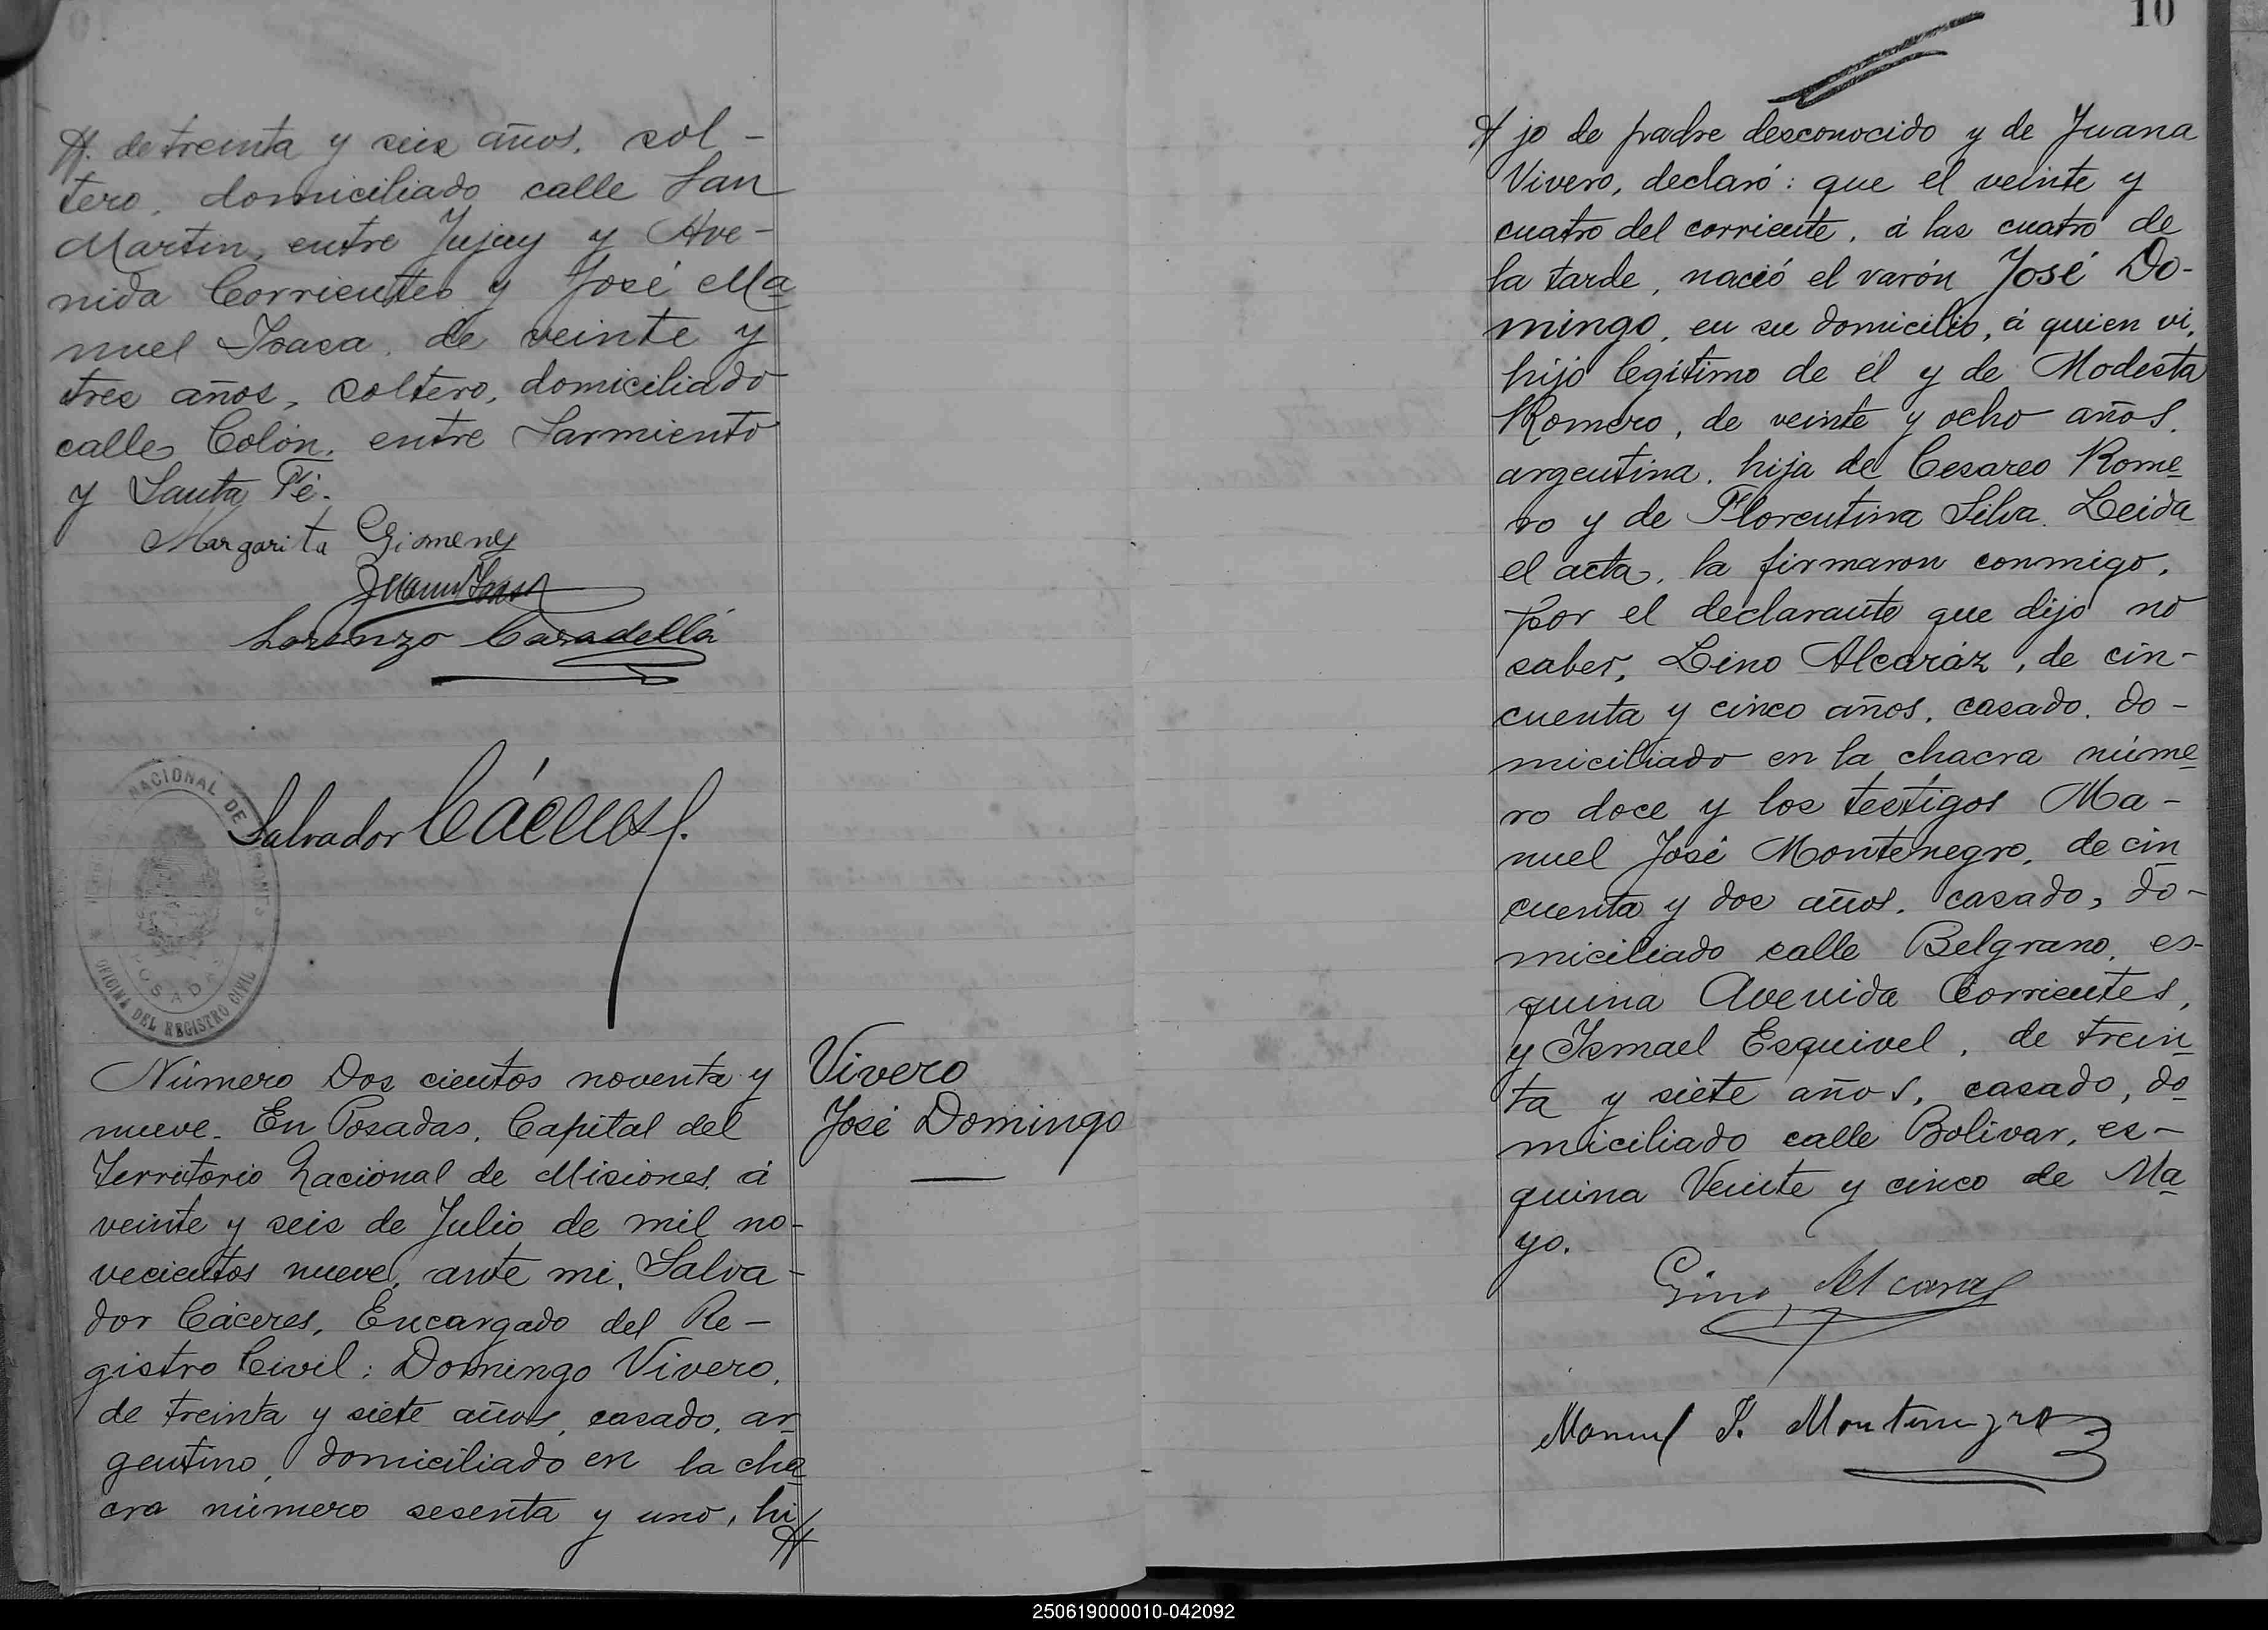 #. de treinta y seis años, sol-
tero, domiciliado calle San
Martin, entre Jujuy y Ave-
nida Corrientes y José Ma
nuel Isasa, de veinte y
tres años, soltero, domiciliado
calle Colón, entre Sarmiento
y Santa Fé.
Margarita Gimenez
Lorenzo Casadellá
Salvador Cáceres
NACIONAL DE
OFICINA DEL REGISTRO CIVIL
POSADAS
Número Dos cientos noventa y
nueve. En Posadas, Capital del
Territorio Nacional de Misiones á
veinte y seis de Julio de mil no-
vecientos nueve, ante mi, Salva-
dor Cáceres, Encargado del Re-
gistro Civil: Domingo Vivero,
de treinta y siete años, casado, ar
gentino, domiciliado en la cha
cra número sesenta y uno, hi
#
Vivero
José Domingo
10
# jo de padre desconocido y de Juana
Vivero, declaró: que el veinte y
cuatro del corriente, á las cuatro de
la tarde, nació el varón José Do-
mingo, en su domicilio, á quien vi,
hijo legítimo de él y de Modesta
Romero, de veinte y ocho años,
argentina, hija de Cesareo Rome
ro y de Florentina Silva. Leida
el acta, la firmaron conmigo,
por el declarante que dijo no
saber, Lino Alcaráz, de cin-
cuenta y cinco años, casado, do-
miciliado en la chacra núme
ro doce y los testigos Ma-
nuel José Montenegro, de cin
cuenta y dos años, casado, do-
miciliado calle Belgrano, es-
quina Avenida Corrientes,
y Ismael Esquivel, de trein
ta y siete años, casado, do
miciliado calle Bolivar, es-
quina Veinte y cinco de Ma
yo.
Lino Alcaraz
Manuel J. Montenegro
250619000010-042092